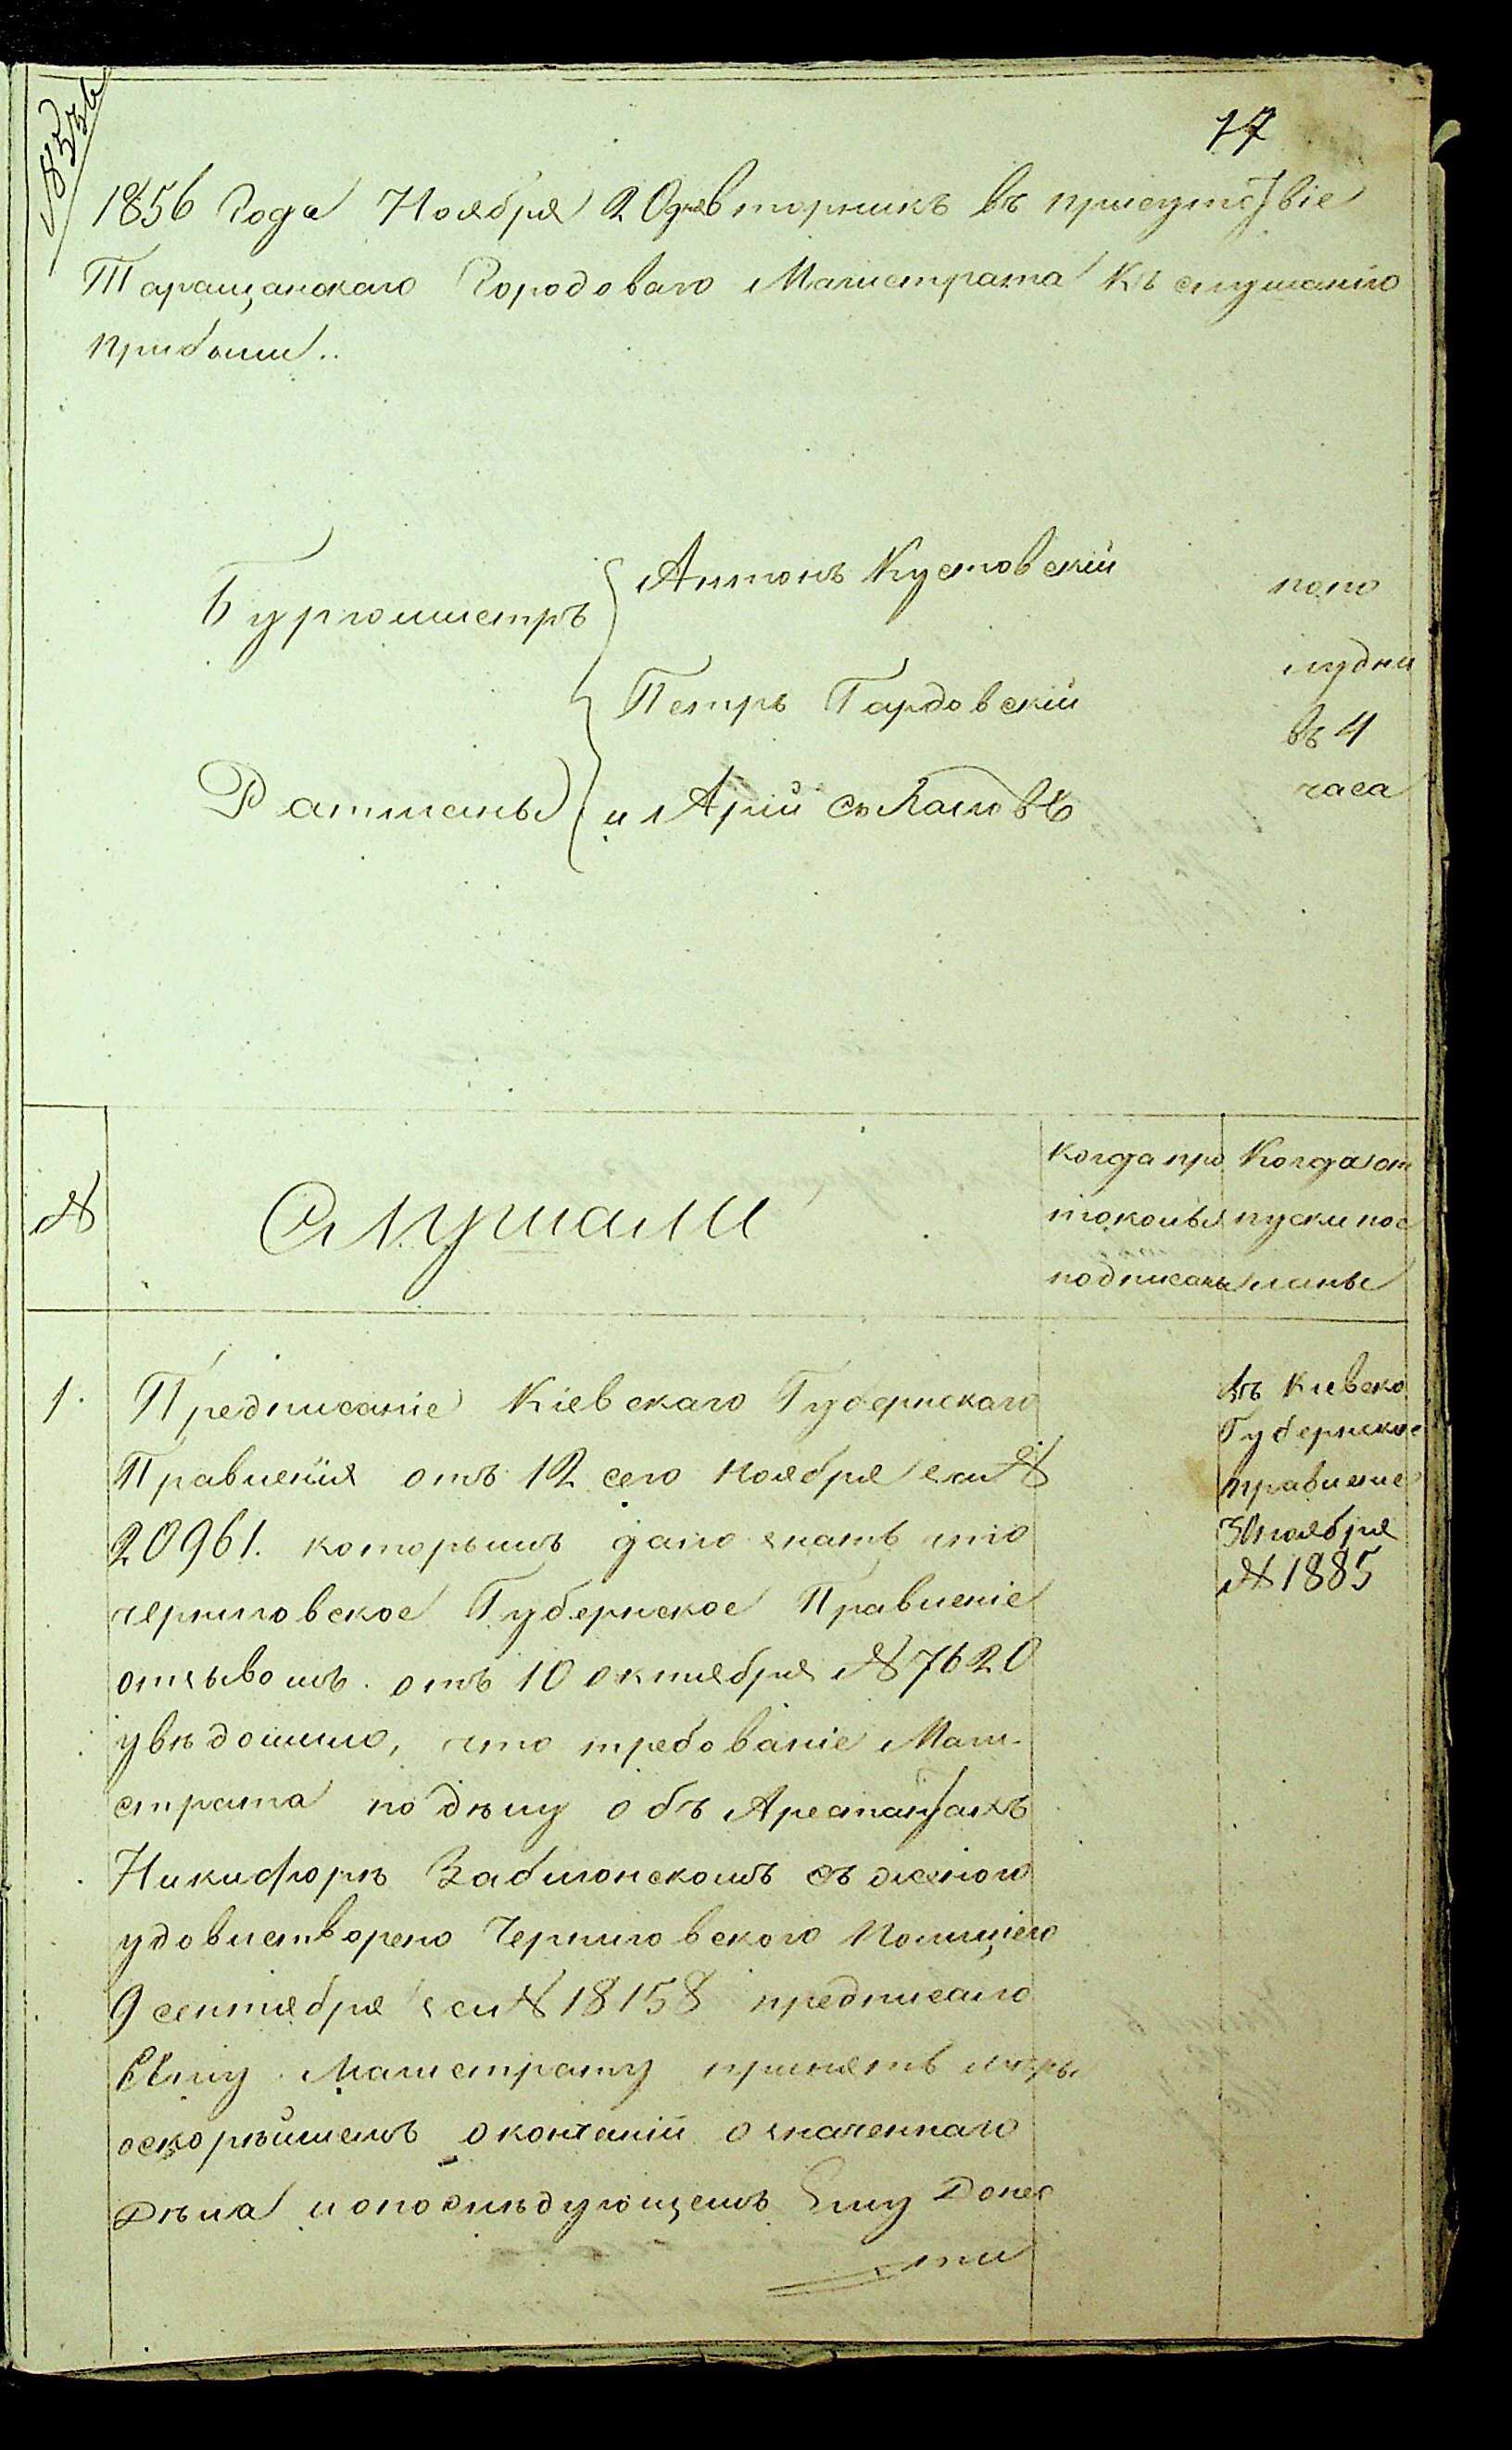 17
1856 года Ноября 20 дня вторникъ въ присутствіе
Таращанскаго Городоваго Магистрата къ слушанію
прибыли..
Бургомистръ
Антонъ Кустовскій
Петръ Гардовскій
Ратманы
и Арій
попо
лудни
въ 4
часа
№
Слушали
Когда про
токолы
подписаны
Когда от
пуски пос
ланы
1.
Предписаніе Кіевскаго Губернскаго
Правленія отъ 12 сего ноября за №
20961. которымъ дано знать что
черниговское Губернское Правленіе
отзывомъ отъ 10 октября № 7620
увѣдомило, что требованіе Маги-
страта по дѣлу объ Арестантахъ
Никифорѣ Заблонскомъ съ женою
удовлетворено Черниговского Полиціею
9 сентября за № 18158 предписало
Ему Магистрату принять мѣры
о скорѣйшемъ окончаніи означеннаго
Дѣла и о послѣдующемъ Ему Донес
ти
въ Кіевско
Губернское
правленіе
30 ноября
№ 1885